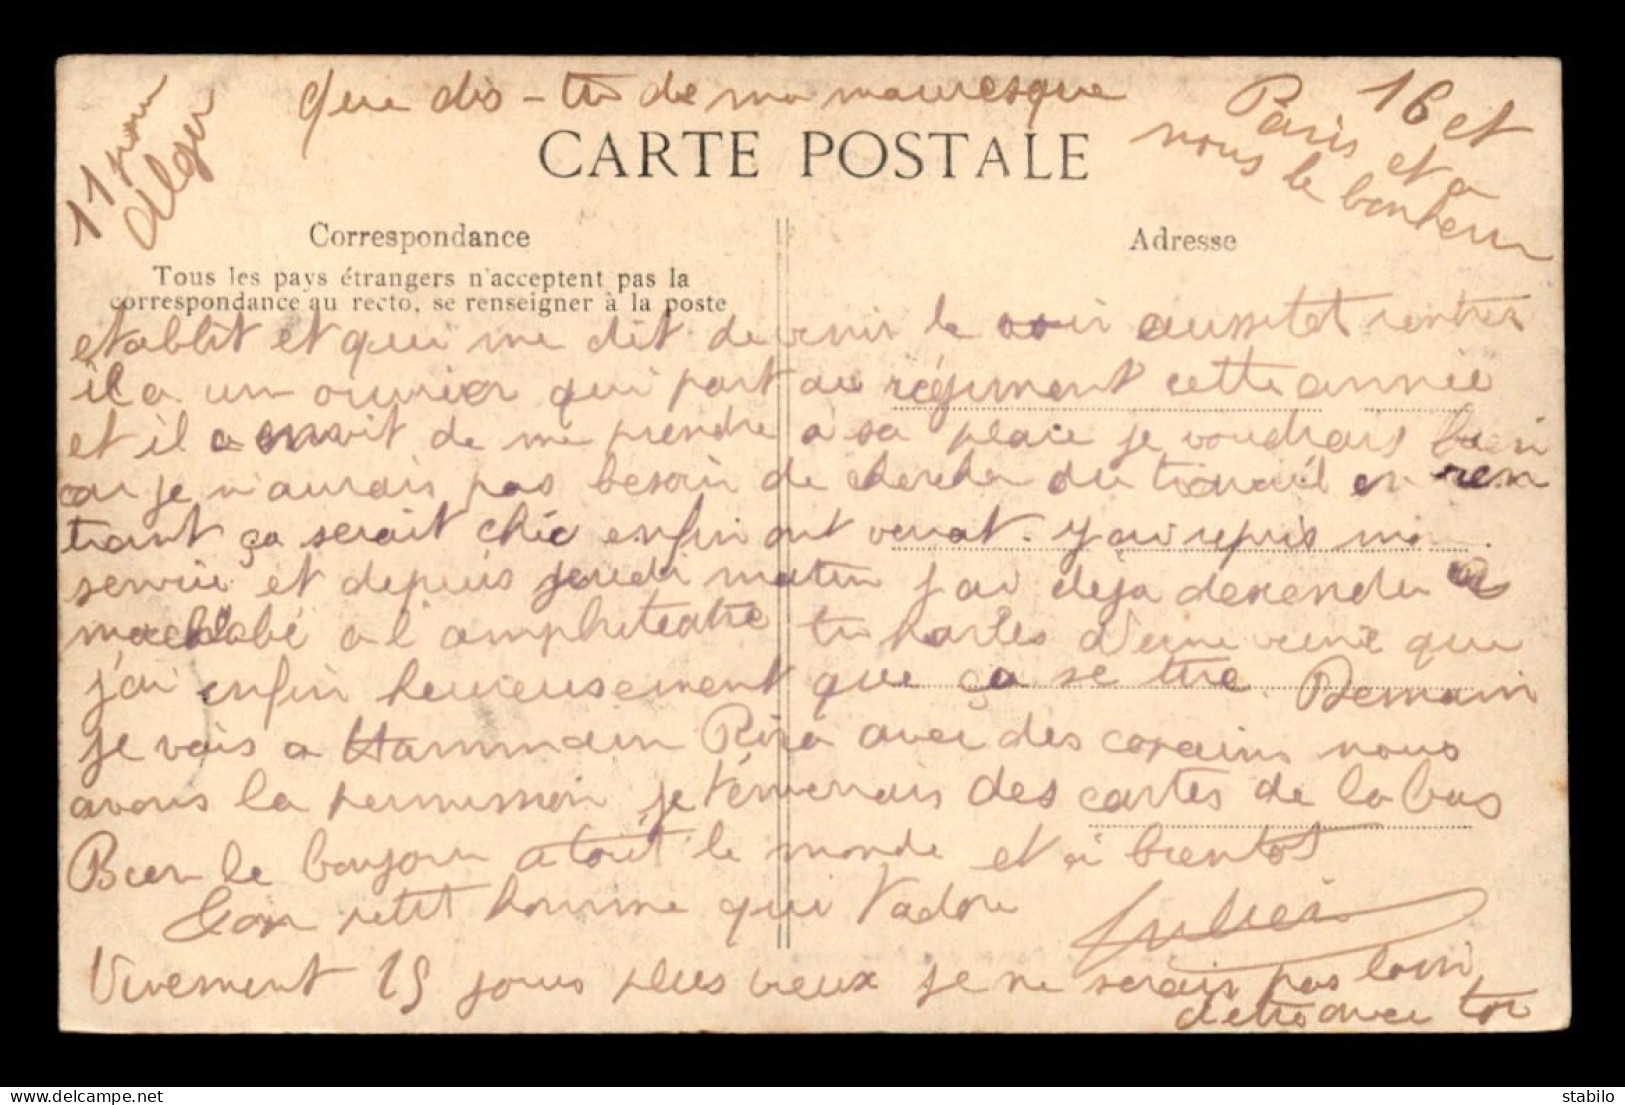 Que dis-tu de ma mauresque
11 pour
Alger
16 et
Paris et a
nous le bonheur
CARTE POSTALE
Correspondance
Adresse
Tous les pays étrangers n'acceptent pas la
correspondance au recto, se renseigner à la poste
etablit et qui me dit de venir le voir aussitot rentrer
il a un ouvrier qui part au régiment cette année
et il a envit de me prendre a sa place je voudrais bien
car je n'aurais pas besoin de chercher du travail en ren
trant ça serait chic enfin ont verrat. J'ai repris mon
service et depuis jeudi matin j'ai deja descendu
machabé a l'amphiteatre tu parles d'une veine que
j'ai enfin heureusement que ça se tire. Demain
je vais a Hammam Rira avec des copains nous
avons la permission je t'enverrais des cartes de la bas
Bien le bonjour a tout le monde et a bientot
Ton petit homme qui t'adore
Julien
Vivement 15 jours plus vieux je ne serais pas loin
detre avec toi
delcampe.net
stabilo